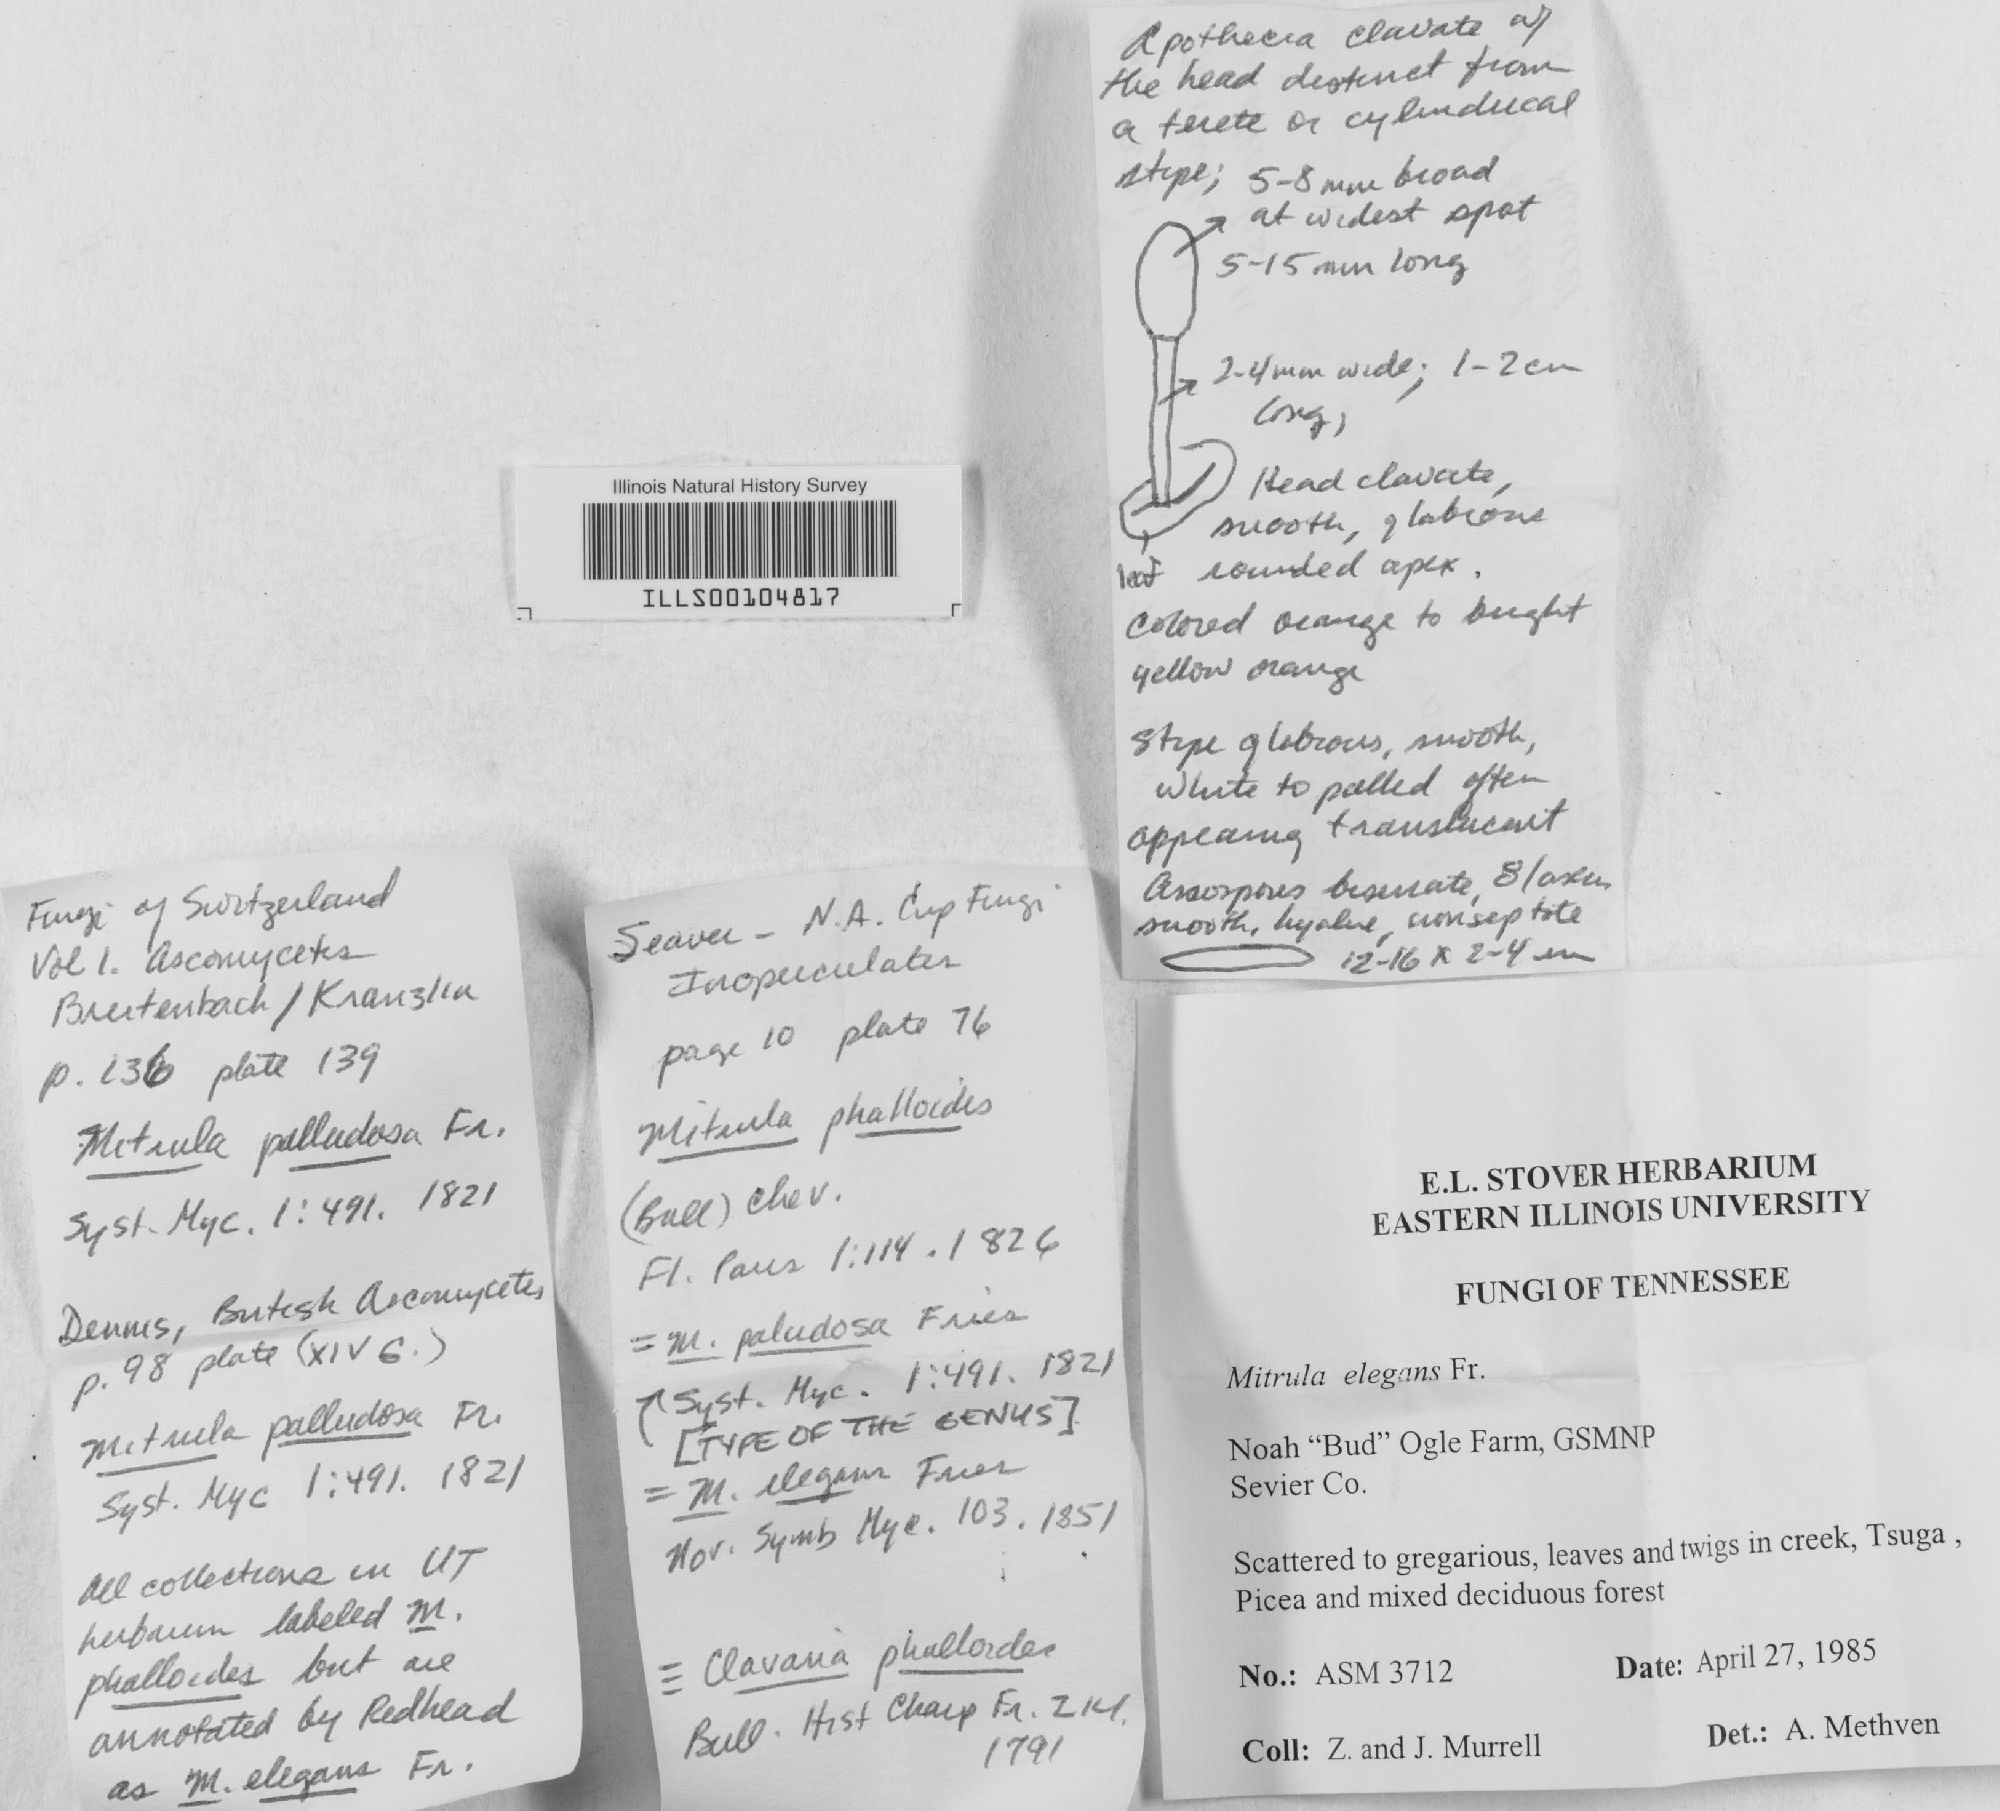 Apothecia clavate w/
the head distinct from
a terete or cylindrical
stipe; 5-8 mm broad
at widest spot
5-15 mm long
2-4 mm wide; 1-2 cm
long,
Head clavate,
smooth, glabrous
leaf rounded apex.
Colored orange to bright
yellow orange
Stipe glabrous, smooth,
white to pallid often
appearing translucent
Ascospores biseriate, 8/ascus
smooth, hyaline, nonseptate
12-16 x 2-4 um
Illinois Natural History Survey
ILLS00104817
Fungi of Switzerland
Vol 1. Ascomycetes
Breitenbach/Kranzlin
p. 136 plate 139
Mitrula palludosa Fr.
Syst. Myc. 1:491. 1821
Dennis, British Ascomycetes
p. 98 plate (XIV G.)
Mitrula palludosa Fr.
Syst. Myc 1:491. 1821
All collections in UT
herbarium labeled M.
phalloides but are
annotated by Redhead
as M. elegans Fr.
Seaver - N.A. Cup Fungi
Inoperculates
page 10 plate 76
Mitrula phalloides
(Bull) Chev.
Fl. Paris 1:114. 1826
= M. paludosa Fries
Syst. Myc. 1:491. 1821
[TYPE OF THE GENUS]
= M. elegans Fries
Nov. Symb Myc. 103. 1851
≡ Clavaria phalloides
Bull. Hist Champ Fr. 214.
1791
E.L. STOVER HERBARIUM
EASTERN ILLINOIS UNIVERSITY
FUNGI OF TENNESSEE
Mitrula elegans Fr.
Noah “Bud” Ogle Farm, GSMNP
Sevier Co.
Scattered to gregarious, leaves and twigs in creek, Tsuga ,
Picea and mixed deciduous forest
No.: ASM 3712 Date: April 27, 1985
Coll: Z. and J. Murrell Det.: A. Methven